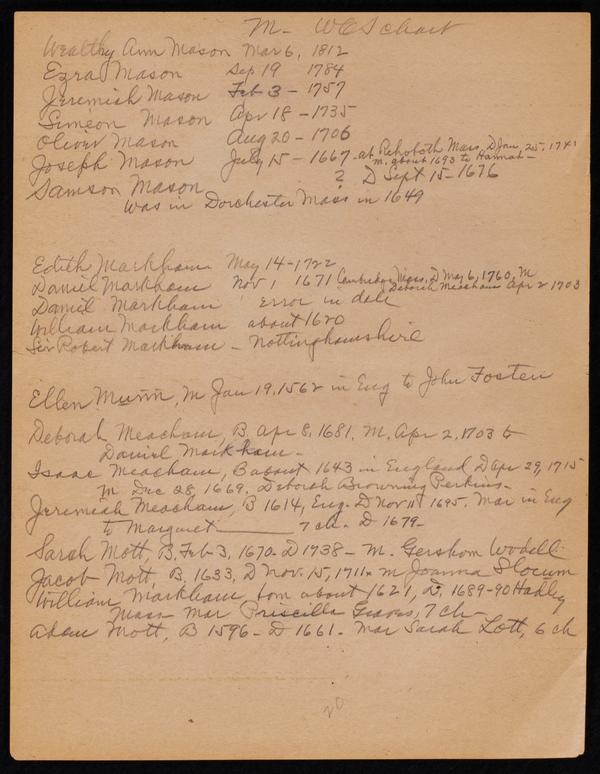 M- W C Schart
Wealthy Ann Mason Mar 6, 1812
Ezra Mason Sep 19 1784
Jeremiah Mason Feb 3 - 1757
Simeon Mason Apr 18 - 1735
Oliver Mason Aug 20 - 1706
Joseph Mason July 15 - 1667 - at Rehoboth Mass, D Jan, 25, 1741
m. about 1693 to Hannah -
Samson Mason ? D Sept 15 - 1676
was in Dorchester Mass in 1649
Edith Markham May 14 - 1722
Daniel Markham Nov 1 1671 Cambridge, Mass, D May 6, 1760, M
Deborah Meacham Apr 2 1703
Daniel Markham Error in date
William Markham about 1620
Sir Robert Markham - Nottinghamshire
Ellen Munn, m Jan 19, 1562 in Eng to John Foster
Deborah Meacham, B. Apr 8, 1681, M, Apr 2, 1703 to
Daniel Markham -
Isaac Meacham, B about 1643 in England D Apr 29, 1715
M Dec 28, 1669. Deborah Browning Perkins -
Jeremiah Meacham, B 1614, Eng - D Nov 11 1695. Mar in Eng
to Margaret 7 ch - D 1679 -
Sarah Mott, B, Feb 3, 1670 - D 1738 - M. Gershom Wodell -
Jacob Mott, B, 1633, D Nov. 15, 1711 - m Joanna Slocum
William Markham, born about 1621, D, 1689-90 Hadley
Mass - Mar Priscilla Graves, 7 ch -
Adam Mott, B 1596 - D 1661 - Mar Sarah Lott, 6 ch
20